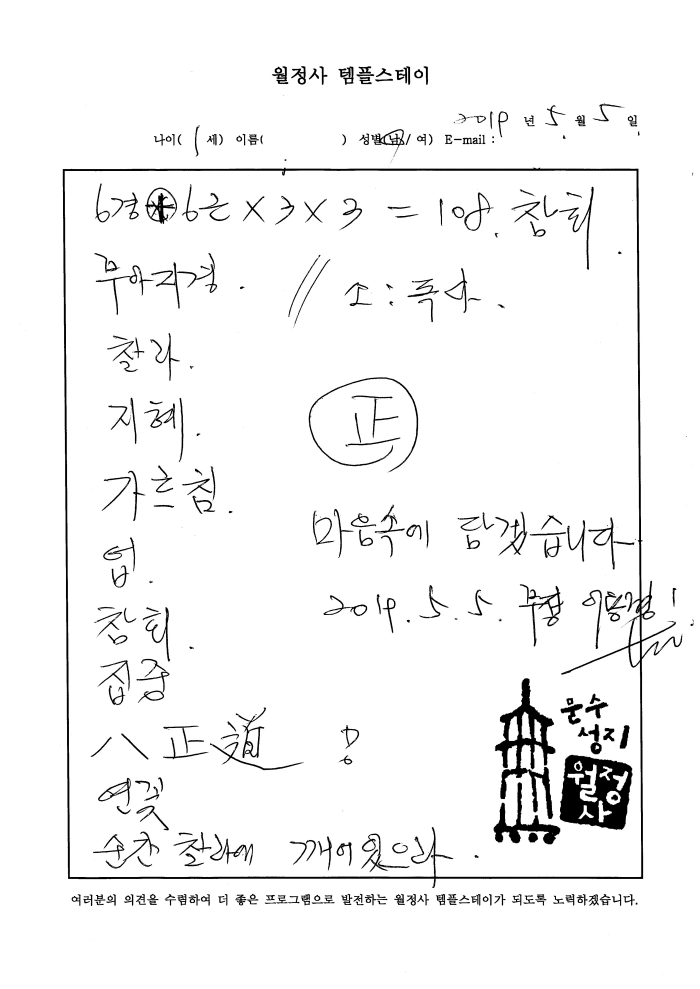 월정사 템플스테이
2019 년 5 월 5 일
나이( 세) 이름( ) 성별(남/여) E-mail :
6경 * 6근 × 3 × 3 = 108. 참회.
무아지경. // 소 : 독사.
찰라.
지혜. 正
가르침.
마음속에 담겠습니다
업.
2019. 5. 5.
참회.
집중
八正道 !
문수
성지
월정
사
연꽃
순간 찰라에 깨어있으라.
여러분의 의견을 수렴하여 더 좋은 프로그램으로 발전하는 월정사 템플스테이가 되도록 노력하겠습니다.